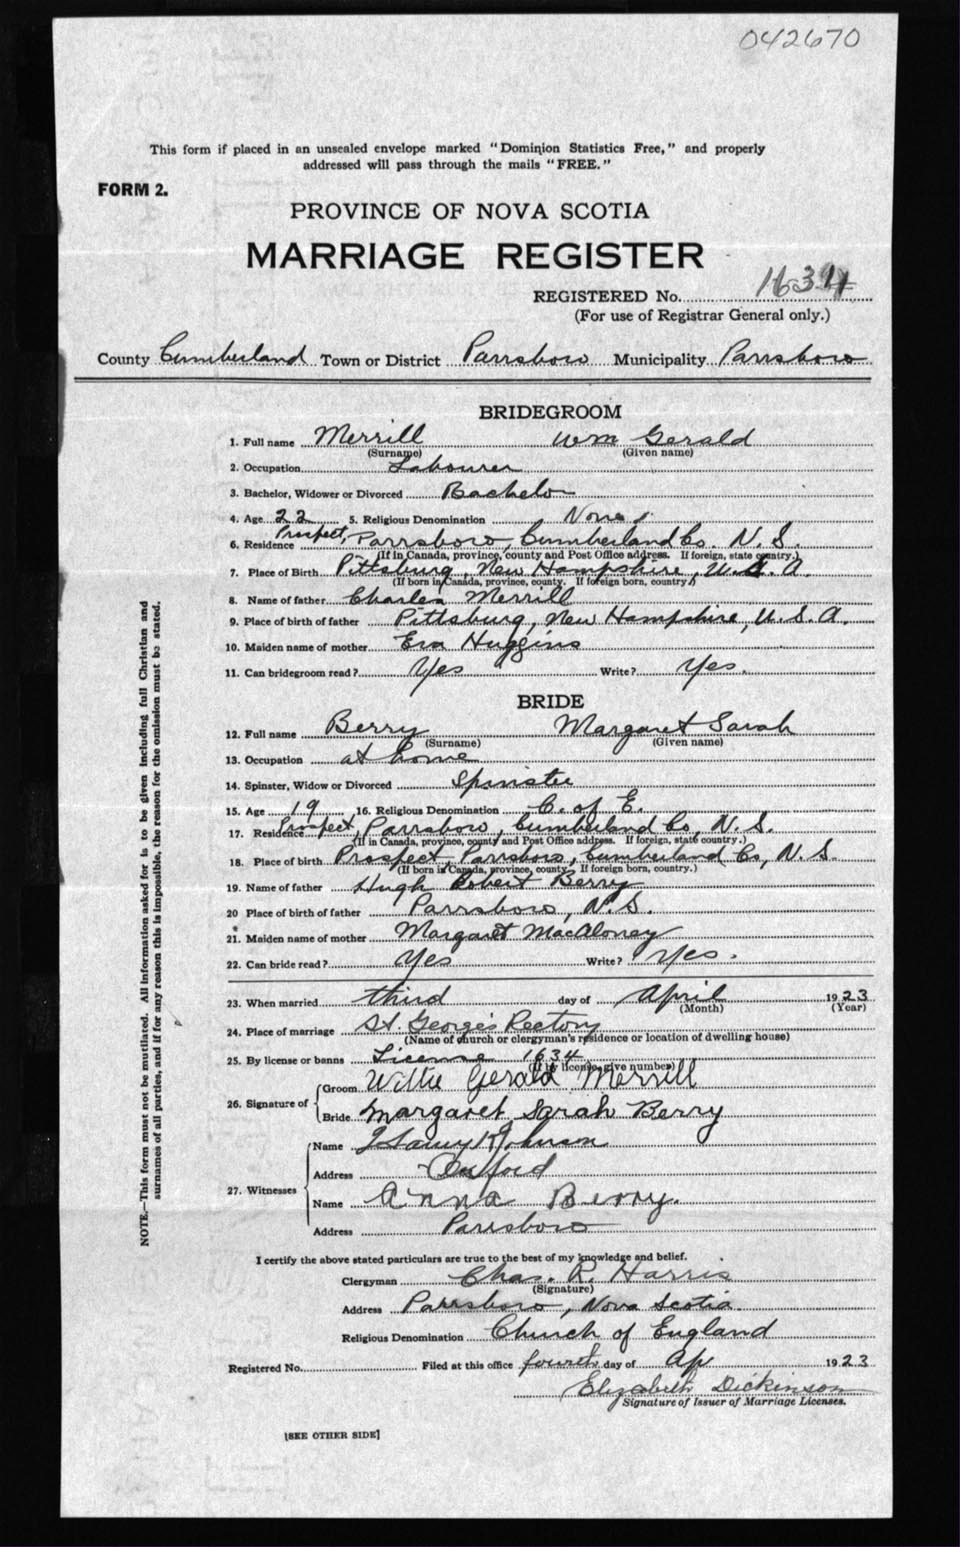 042670
This form if placed in an unsealed envelope marked "Dominion Statistics Free," and properly
addressed will pass through the mails "FREE."
FORM 2.
PROVINCE OF NOVA SCOTIA
MARRIAGE REGISTER
REGISTERED No. 1634
(For use of Registrar General only.)
County Cumberland Town or District Parrsboro Municipality Parrsboro
BRIDEGROOM
1. Full name Merrill Wm Gerald
(Surname) (Given name)
2. Occupation Labourer
3. Bachelor, Widower or Divorced Bachelor
4. Age 22 5. Religious Denomination None
6. Residence Prospect, Parrsboro, Cumberland Co. N. S.
(If in Canada, province, county and Post Office address. If foreign, state country.)
7. Place of Birth Pittsburg, New Hampshire, U.S.A.
(If born in Canada, province, county. If foreign born, country.)
8. Name of father Charles Merrill
9. Place of birth of father Pittsburg, New Hampshire, U.S.A.
10. Maiden name of mother Eva Huggins
11. Can bridegroom read? Yes Write? Yes.
BRIDE
12. Full name Berry Margaret Sarah
(Surname) (Given name)
13. Occupation at home
14. Spinster, Widow or Divorced Spinster
15. Age 19 16. Religious Denomination C. of E.
17. Residence Prospect, Parrsboro, Cumberland Co, N.S.
(If in Canada, province, county and Post Office address. If foreign, state country.)
18. Place of birth Prospect, Parrsboro, Cumberland Co, N.S.
(If born in Canada, province, county. If foreign born, country.)
19. Name of father Hugh Robert Berry
20 Place of birth of father Parrsboro, N.S.
21. Maiden name of mother Margaret MacAloney
22. Can bride read? Yes Write? Yes.
23. When married third day of April 1923
(Month) (Year)
24. Place of marriage St. George's Rectory
(Name of church or clergyman's residence or location of dwelling house)
25. By license or banns License 1634
(If by license, give number)
26. Signature of Groom Willie Gerald Merrill
Bride Margaret Sarah Berry
27. Witnesses Name Johnson
Address Oxford
Name Anna Berry.
Address Parrsboro
I certify the above stated particulars are true to the best of my knowledge and belief.
Clergyman Chas. R. Harris
(Signature)
Address Parrsboro, Nova Scotia
Religious Denomination Church of England
Registered No. Filed at this office fourth day of Ap 1923
Elizabeth Dickinson
Signature of Issuer of Marriage Licenses.
[SEE OTHER SIDE]
NOTE.—This form must not be mutilated. All information asked for is to be given including full Christian and
surnames of all parties, and if for any reason this is impossible, the reason for the omission must be stated.